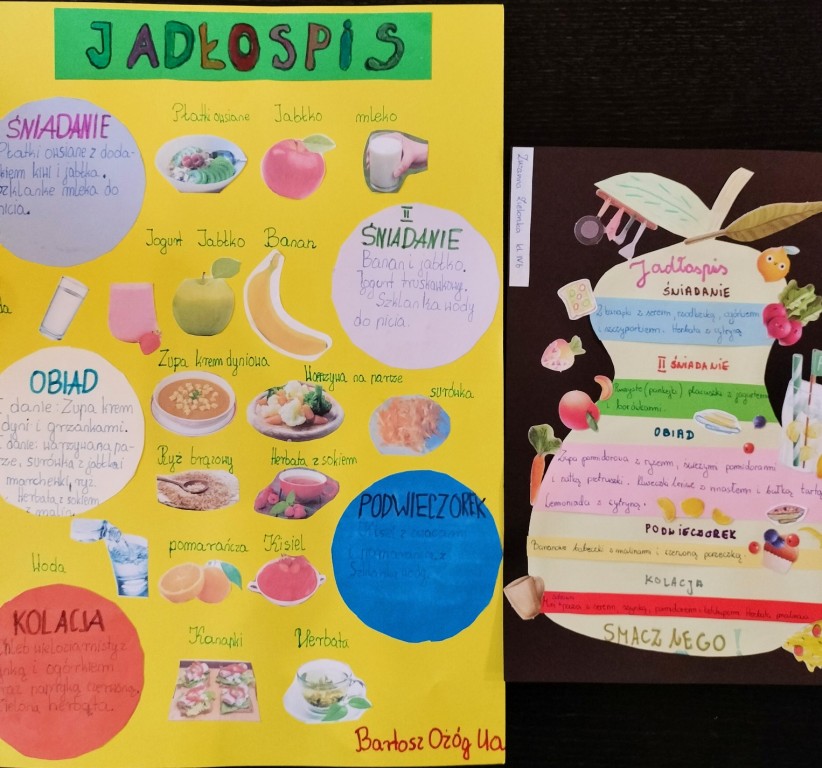 JADŁOSPIS
Płatki owsiane Jabłko mleko
ŚNIADANIE
Płatki owsiane z doda-
kiem kiwi i jabłka.
szklanke mleka do
picia.
Jogurt Jabłko Banan
II
ŚNIADANIE
Banan i jabłko.
Jogurt truskawkowy.
Szklanka wody
do picia.
Zupa krem dyniowa
Warzywa na parze
surówka
OBIAD
danie: Zupa krem
dyni z grzankami.
danie: warzywa na pa-
rze, surówka z jabłka i
marchewki, ryż.
herbata z sokiem
z malin.
Ryż brązowy Herbata z sokiem
PODWIECZOREK
Kisiel z owocami
Pomarańcza
Szklanka wody
Woda pomarańcza Kisiel
KOLACJA
Chleb wieloziarnisty z
ynką i ogórkiem
oraz papryką czerwoną.
Zielona herbata.
Kanapki Herbata
Bartosz Ożóg IIa
Zuzanna Zielonka kl. IVb
Jadłospis
ŚNIADANIE
2 kanapki z serem, rzodkiewką, ogórkiem
i szczypiorkiem. Herbata z cytryną.
II ŚNIADANIE
placuszki z jogurtem
i borówkami.
OBIAD
Zupa pomidorowa z ryżem, świeżymi pomidorami
i natką pietruszki. Kluseczki leniwe z masłem i bułką tartą.
Lemoniada z cytryną.
PODWIECZOREK
Bananowe babeczki z malinami i czerwoną porzeczką.
KOLACJA
z serem, szynką, pomidorem i ketchupem. Herbata
SMACZNEGO